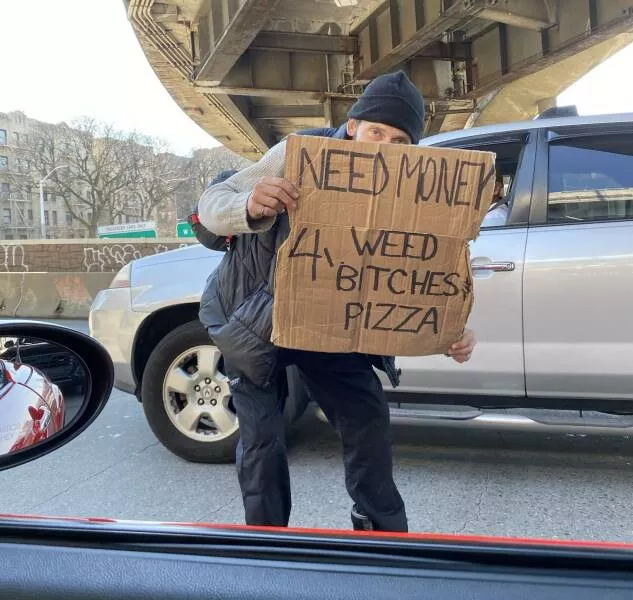 NEED MONEY
4, WEED
BITCHES &
PIZZA